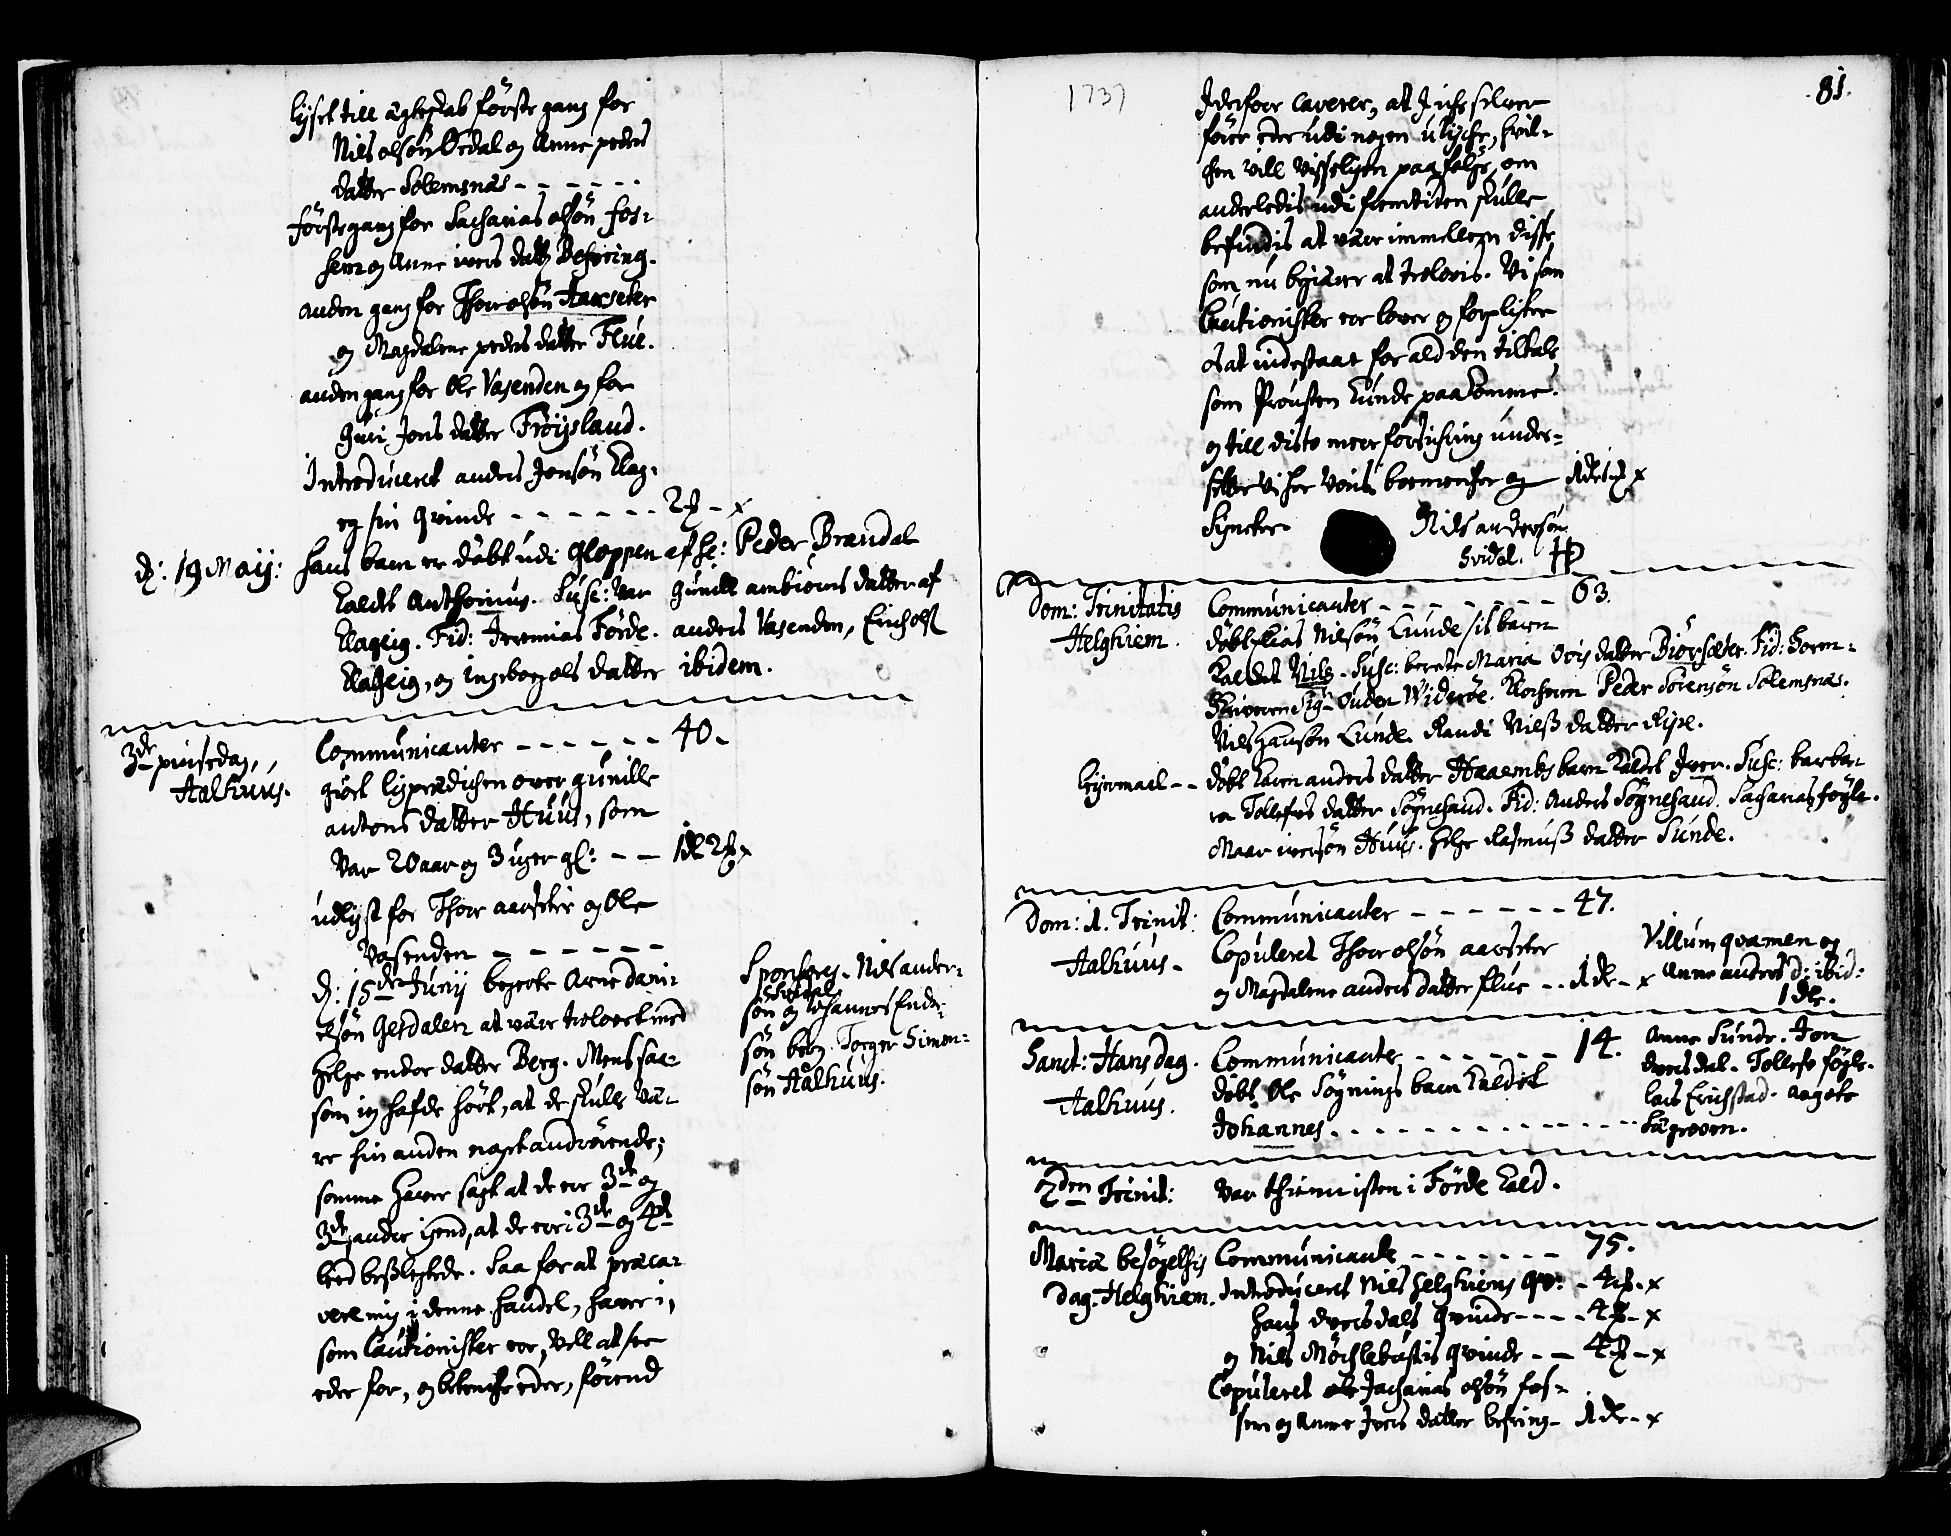 lyset till ægteskab første gang for
Nils olsøn Ordal og Anne peders
datter Solemsnæs - - - - - -
første gang for Sacharias olsøn fos-
sem og Anne ivers datt. Befring.
anden gang for Thor olsøn Aarseter
og Magdalene peders datter Flúe.
anden gang for Ole Vasenden og for
Guri Jons datter Frøysland.
Introduceret anders Jonsøn Klag-
eg sin qvinde - - - - - - 2 ß - x
d: 19 Maij: hans barn er døbt udi Gloppen af hr: Peder Brandal
Kaldet Anthonius. Susc: var Gunild ambiørns datter af
Klageig. Fid: Jeremias Førde. anders Vasenden, Erich ols
Klageig, og Ingeborg ols datter ibidem.
3de pinsedag,
Aalhúús.
Communicanter - - - - - - 40.
giort ligprædichen over gunille
antons datter Húús, som
var 20 aar og 3 uger gl: - - 1 dl 2 ß x
udlyst for Thor aarseter og Ole
Vasenden - - - - - - -
d: 15de Junij begerte Arne Dani-
elsøn Gerdalen at være troloved med
Helge endre datter Berg. Mens saa-
som ieg hafde hørt, at de skulle væ-
re hin anden nogt andrørende;
somme haver sagt at de ere 3de og
3de, andre igend, at de ere i 3de og 4de
leed beslegtede. Saa for at præca-
vere mig i denne handel, haver i,
som Cautionister ere, vell at see
eder for, og betenche eder, førend
Sponsores. Nils ander-
søn Svidal
og Johannes Endre-
søn berg. Torger Simen-
søn Aalhúús.
1737
81.
I derfore caverer, at I iche selver
fører eder udi nogen ulyche, hvil-
chen vill visseligen paafølge, om
anderledis udi fremtiden skulle
befindis at være immellem disse
som nu begierer at trolovis. Vi som
Cautionister ere lover og forplichter
os at indestaae for ald den tiltale
som Prousten kunde paakomme.
og till disto meer forsichring under-
setter vi her voris boemercher og 1 dl x
Signeter.
Nils andersøn
Svidal. HP
Dom: Trinitatis
Helghiem.
Communicanter - - - - - - - 63.
døbt Elias Nilsøn Lunde sit barn
Kaldet Nils. Susc: berete Maria Ovis datter Biørsæter. Fid: Soren-
skriveren Sig: Ouden Widerøe. Klocheren Peder Sørensøn Solemsnæs.
Nils Hansøn Lúnde. Randi Nilss datter Ripe.
Leyermaal - - døbt Karen anders datter Haaembs barn kaldet Iver. Susc: barba-
ra Tollefs datter Søgnesand. Fid: Anders Søgnesand. Sacharias føgle.
Maar iversøn Húús. Helge Rasmuss datter Súnde.
Dom: 1. Trinit:
Aalhúus -
Communicanter - - - - - - 47.
Copuleret Thor olsøn aarseter
og Magdalene anders datter flúe - - 1 dl - x
Villum qvamen og
Anne anders d: ibid:
1 dlr.
Sanct: Hansdag.
Aalhúús.
Communicanter - - - - - - 14.
døbt Ole Søgnings barn Kaldet
Johannes. - - - - - - - - - - - -
Anne Súnde. Jon
dversdal. Tollefs føgle.
lars Erichstad. aagote
Sægroven.
2den Trinit: var thiennisten i Førde Kald.
Mariæ besøgelsis
dag. Helghiem.
Communicante - - - - - - - 75.
Introduceret Nils Helghiems qv: - 4 ß - x
Hans dversdals qvinde - - - - 4 ß - x
og Nils Mörchlebústis qvinde - - 4 ß - x
Copuleret Zacharias olsøn fos-
sem og Anne Ivers datter befring - 1 dl - x